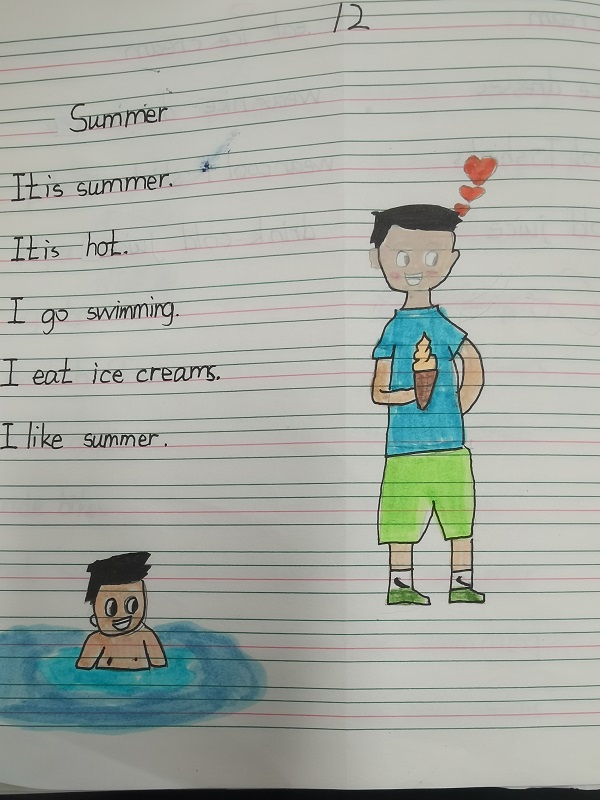 12
Summer
It is summer.
It is hot.
I go swimming.
I eat ice creams.
I like summer.